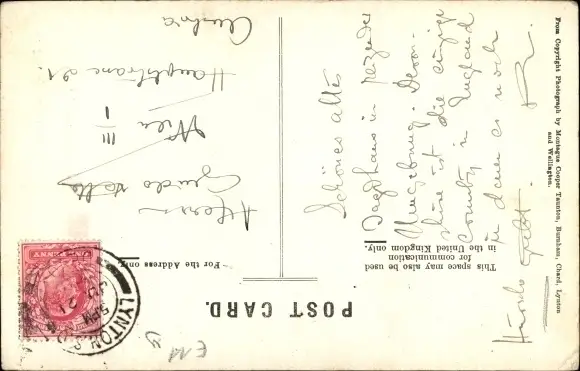 POST CARD.
This space may also be used
for communication
in the United Kingdom only.
For the Address only.
Schönes altes
Jagdhaus in reizender
Umgebung. Devon-
shire ist die einzige
County in England
in dem es noch
Hirsche gibt. R.
Herrn
Guido
Wien III/1
Hauptstrasse 21.
Austria
From Copyright Photograph by Montague Cooper Taunton, Burnham, Chard, Lynton
and Wellington.
ONE PENNY
LYNTON
5 PM